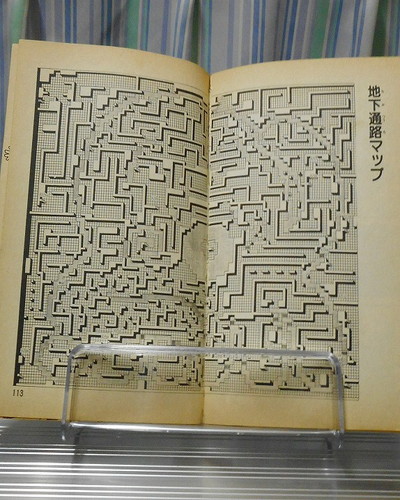 地下通路マップ
113